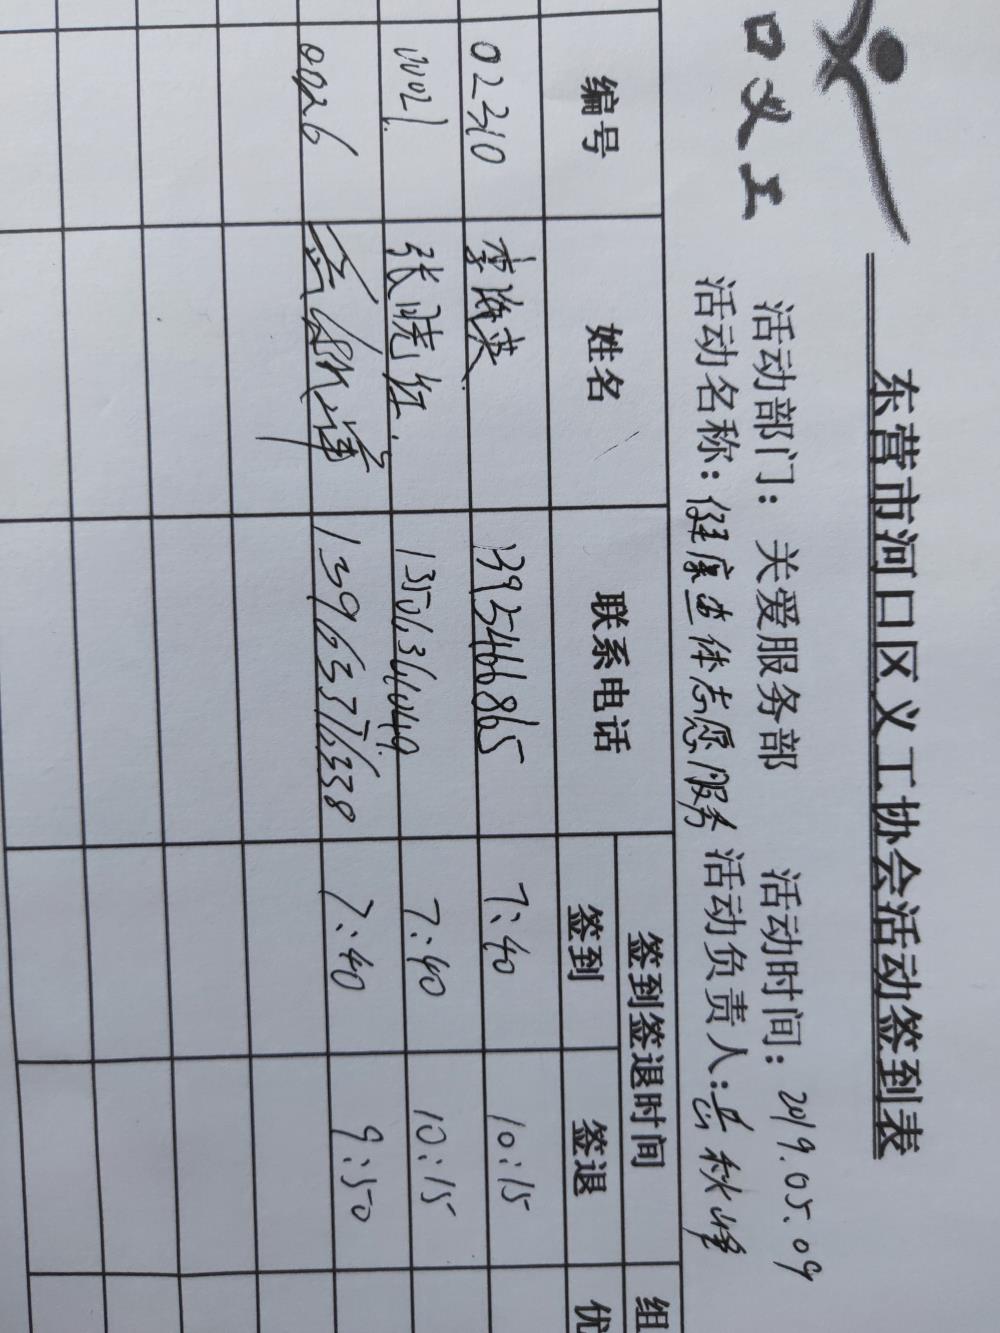 口义工
东营市河口区义工协会活动签到表
活动部门：关爱服务部 活动时间：2019.05.09
活动名称：健康查体志愿服务 活动负责人：岳秋峰
编号 姓名 联系电话 签到签退时间 组
签到 签退 优
02310 李海英 7:40 10:15
张晓红 7:40 10:15
0026 13963376338 7:40 9:50